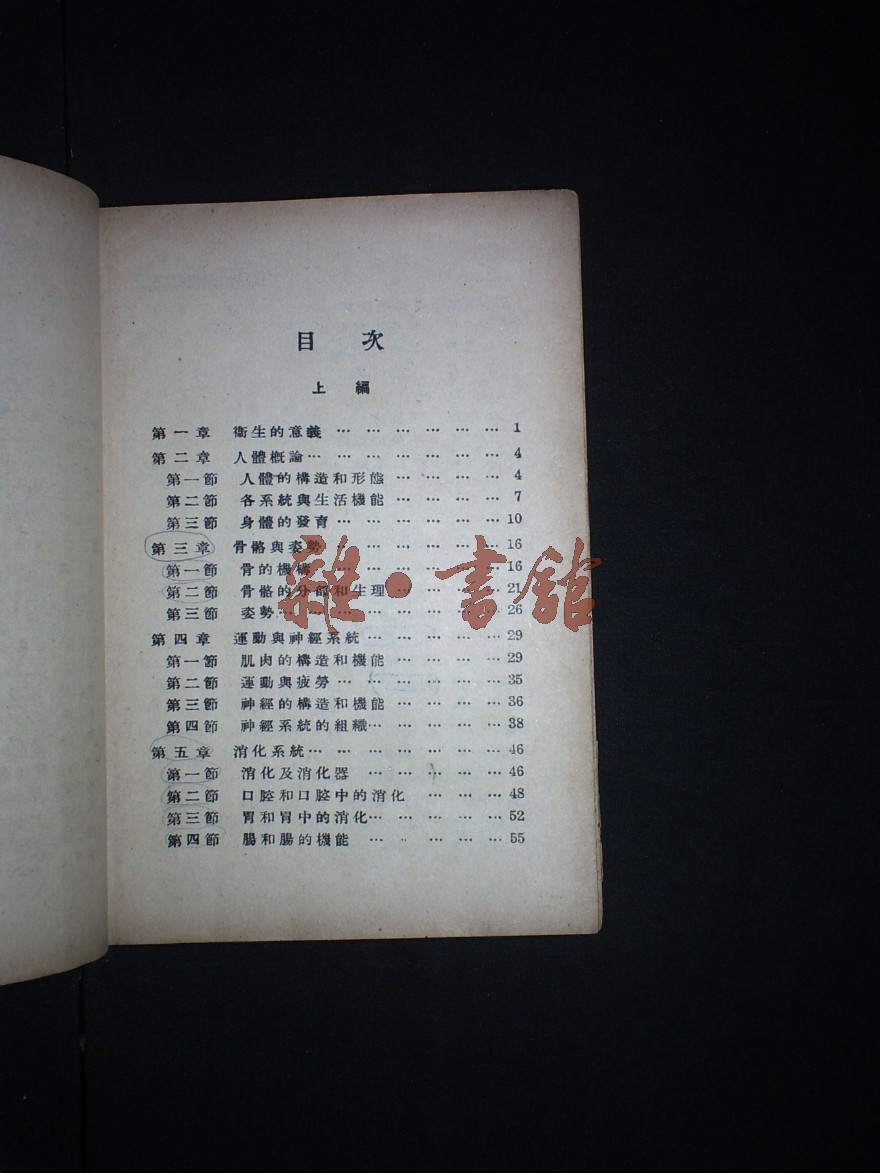 目次
上編
第一章 衛生的意義 … … … … … … 1
第二章 人體概論… … … … … … … 4
第一節 人體的構造和形態 … … … … 4
第二節 各系統與生活機能 … … … … 7
第三節 身體的發育 … … … … … … 10
第三章 骨骼與姿勢 … … … … … … 16
第一節 骨的機構… … … … … … … 16
第二節 骨骼的分部和生理 … … … … 21
第三節 姿勢… … … … … … … … 26
第四章 運動與神經系統 … … … … … 29
第一節 肌肉的構造和機能 … … … … 29
第二節 運動與疲勞 … … … … … … 35
第三節 神經的構造和機能 … … … … 36
第四節 神經系統的組織… … … … … 38
第五章 消化系統… … … … … … … 46
第一節 消化及消化器 … … … … … 46
第二節 口腔和口腔中的消化 … … … 48
第三節 胃和胃中的消化… … … … … 52
第四節 腸和腸的機能 … … … … … 55
雜·書館